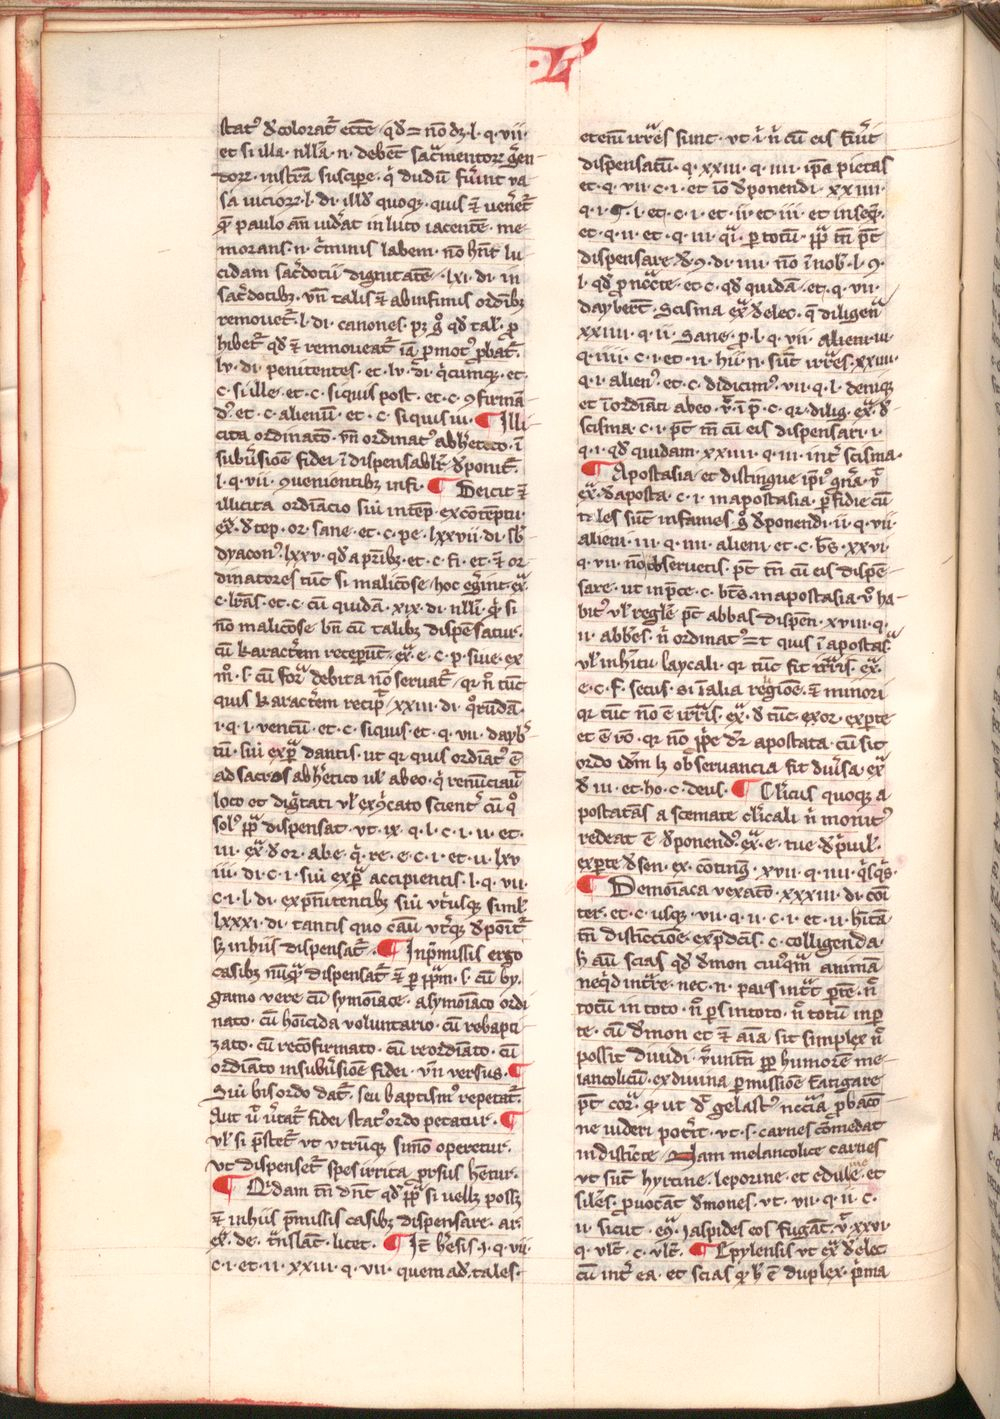 ·L·
stat⁹ ⁊ colorat᷑ ecc̄e · qd̄ = nō dꝫ · l · q · vii ·
et si illa · nll̄a · n · debēt sac̄mentoꝝ gen-
toꝝ · inst̄ra suscipe · q̇ dudū fu᷑int va
sa vicioꝝ · l · di · illd̄ quoqꝫ · quis
paulo an̄ vid᷑at in luto iacentē · me-
morans · n · c̄minis labem · nō hn̄t lu-
cidam sac̄dotii dignitatē · lxi · di · in
sac̄dotibꝫ · vn̄ talis ⁊ abinfimis ordibꝫ
remouet᷑ · l · di · canones · pꝫ g° qd̄ tal᷑ · p̄
hibet᷑ qd̄ ⁊ remoueat᷑ iā pmot⁹ pbat᷑ ·
lv · di · penitentes · et · lv · di · q̇cumqꝫ · et ·
c · si ille · et · c · si quis post · et · c · ꝯfirmā
d⁹ · et · c · alienū · et · c · si quis iii · ¶ Illi
cita ordinatō · vn̄ ordinat⁹ ab h̄etico · ī
subu᷑sionē fidei ī dispensabl̄r deponit᷑ ·
l · q · vii · ꝯuenientibꝫ infi · ¶ Deicit ⁊
illicita ordiācio siū intēp̄ · ex cōtēptu
ex̄ · d̄ tēp · or · sane · et · c · pe · lxxvii · di · sb̄
dyacon⁹ · lxxv · qd̄ a prībꝫ · et · c · fi · et · ⁊ or
dinatores tūc si maliciōse hoc eg̊int · ex̄
c · lrās · et · c · cū quidā · xix · di · nlli · q̊ si
nō maliciose · bn̄ cū talibꝫ dispēsatur ·
cū karact̄em recepūt · ex̄ · e · c · p · siue · ex
m° · l · cū for̄a debita nō seruat᷑ · qr n̄ tūc
quis karact̄em recip᷑ · xxiii · di · q°rūdā ·
i · q · i · ventū · et · c · siquis · et · q · vii · dayb̄
tū · siū exp̄ dantis · ut qr quis ordiat⁹ ē
ad sacros ab h̄etico ul̄ abeo · q̇ renūciaū
loco et dig̊tati ul̄ exꝯ̄cato scient᷑ cū q°
sol⁹ pp̄ dispensat · vt · ix · q · l · c · i · ii · et ·
iii · ex̄ · d̄ or · abe · q̇ · re · e · c · i · et · ii · lxv
iii · di · c · i · siū exp̄ accipientis · l · q · vii ·
c · i · l · di · exp̄nitentibꝫ siū vtrusqꝫ siml̄
lxxxi · di · tantis quo cāū vt᷑qꝫ d̄poīt᷑
sꝫ in hiis dispensat᷑ · ¶ Inp̄missis ergo
casibꝫ nūq̄ dispensat᷑ ⁊ ꝑ pp̄m · l · cū by-
gamo vere cū symōiace · a symōiaco ordi
nato · cū hōicida voluntario · cū rebapti
zato · cū recōfirmato · cū reordiato · cū
ordiato in subu᷑sionē fidei · vn̄ versus · ¶
Siū bis ordo dat᷑ · seu baptism⁹ repetat᷑ ·
Aut ū u᷑tat᷑ fidei stat⁹ ordo pecatur · ¶
ul̄ si p̄stet᷑ vt vtrūqꝫ simo᷑ operetur ·
vt dispenset᷑ spes irrita prsus hētur ·
¶ Q̇dam tn̄ dn̄t qd̄ pp̄ si vellꝫ possꝫ
⁊ in hiis p̄missis casibꝫ dispensare · ar ·
ex̄ · de · t̄nslāt · licet · ¶ Itē h̄esis ꝯ · q · vii ·
c · i · et · ii · xxiii · q · vii · quem ad · tales ·
et enī irr̄es sunt · vt ī n̄ cū eis fiūt
dispensatū · q · xxiii · q · iiii · ip̄a pietas
et · q · vii · c · i · et · iō d̄ponendi · xxiiii ·
q · i · g · i · et · c · i · et · ii · et · iii · et inseq̄ ·
et · q · ii · et · q · iii · q̄i · ꝑ totū · pp̄ tn̄ pt̄
dispensare · d̄ ꝯ · di · iiii · nō ī nob̄ · l · ꝯ ·
l · qd̄ p nccte · et · c · qd̄ quidā · et · q · vii ·
dayb̄ert · Scisma ex̄ d̄ elec · q̄ diligen̄
xxiiii · q · ii · Sane · p · l · q · vii · alieni · iii ·
q · iiii · c · i · et · ii · hii · n · sūt irr̄es · xxiiii ·
q · i · alien⁹ · et · c · didicim⁹ · vii · q · l · deniqꝫ
et ī ordiāti abeo · v̊ · ī p̄ · c · qr · dilig · ex̄ · d̄
scisma · c · i · pt̄ tn̄ cū eis dispensari · i ·
q · i · qd̄ quidam · xxiiii · q · iii · int᷑ scisma ·
¶ Apostasia · et distingue ip̄i⁹ gn̄a · v̊
ex̄ · d̄ aposta · c · i · in apostasia · ꝑfidie cū
tales sūt infames g° d̄ponendi · ii · q · vii
alieni · iii · q · iiii · alieni et · c · b̄s · xxvi ·
q · vii · nō obseruetis · pt̄ tn̄ cū eis dispē-
sare · ut inp̄ce · c · bt̄s · in apostasia · v° ha-
bit⁹ ul̄ regl̄e pt̄ abbas dispen̄ · xviii · q ·
ii · abb̄es · n̄ ordinat⁹ = t quis ī apostas̄
ul̄ in h̄itu laycali · qr tūc fit irr̄is · ex̄ ·
e · c · f · secus · si ī alia regiōē · ⁊ minori
qr tūc nō ē irr̄is · ex̄ · d̄ tūc · exor · expte
et ē rō · qr nō pp̄e dr̄ apostata · cū sit
ordo idm̄ lꝫ obseruancia sit diu᷑sa · ex̄
d̄ iii · et · ho · c · deus · ¶ Cl̄icus quoqꝫ a
postatās a scemate cl̄icali n̄ monit⁹
redeat ē d̄ponend⁹ · ex̄ · e · tue · d̄ p̄uil̄ ·
expte · d̄ sen · ex · conting̊ · xvii · q · iiii · q̇sq̇s ·
¶ Demōiaca vexatō · xxxiii · di · cōī
ter · et · c · usqꝫ · vii · q · ii · c · i · et · ii · h̄ita
tn̄ disticciōē · exp̄dcīs · c · colligenda ·
h̄ aū scias qd̄ d̄mon cui⁹q̄m animā
neq̇d int᷑re · nec · n · pars int᷑t ptē · n̄
totū in toto · n̄ ps in toto · n̄ totū in p
te · cū d̄mon et ⁊ aīa sit simplex n̄
possit diuidi · v̊untn̄ pp humorē me-
lancolicū · ex diuina pmissiōē fatigare
pt̄ cor̄a · qr ut d̊ gelast⁹ nccīa pbatō
ne uideri pot᷑it · vt · s · carnes comedat
in distīcte · Nam melancolice carnes
vt sūt hyrcine · leporine · et edule · et
siles · puocāt d̄mones · vt · vii · q · ii · c ·
ii · sicut · eq̄ · iaspides eos fugāt · v̊ xxvi
q · vlt̄ · c · vlt̄ · ¶ Epylensis vt ex̄ d̄ elec
cū int᷑ ea · et scias qr h̄ ē duplex · p̄ma